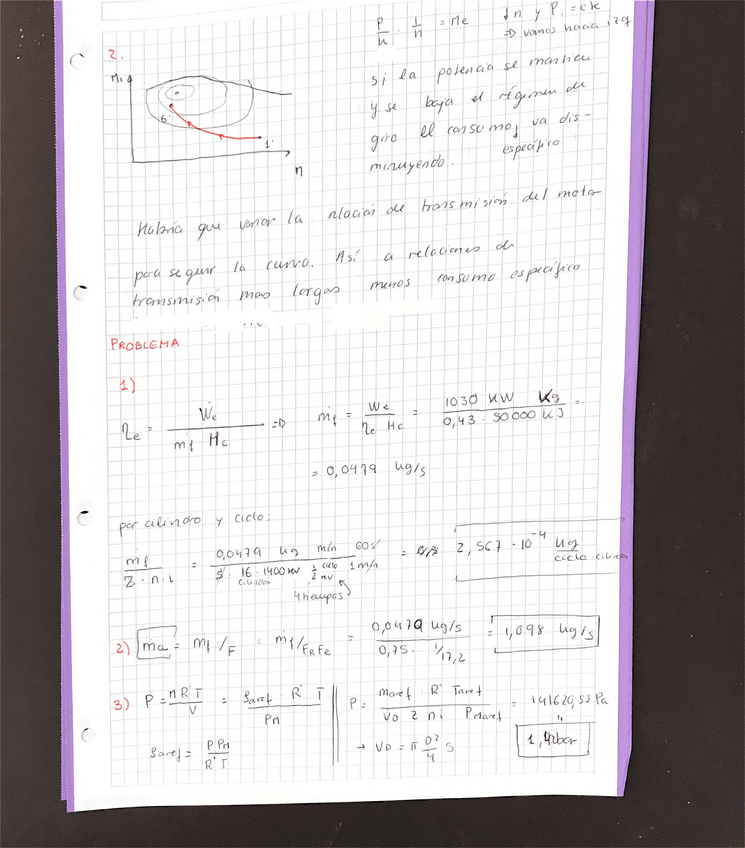 P/n · 1/n = Me ↓n y P. = cte
=> vamos hacia izq
2.
Me
6·
1·
n
Si la potencia se mantiene
y se baja el régimen de
giro el consumo, va dis-
específico
minuyendo.
Habría que variar la relación de transmisión del motor
para seguir la curva. Así a relaciones de
transmisión mas largas menos consumo específico
PROBLEMA
1)
ηe = Ẇe / ṁf Hc => ṁf = We / ηe Hc = 1030 KW Kg / 0,43 · 50000 KJ =
= 0,0479 kg/s
por cilindro y ciclo:
mf / Z · n · i = 0,0479 kg min 60s / s · 16 · 1400 rev 1/2 ciclo/rev 1min = 2,567 · 10^-4 kg / ciclo · cilindro
cilindros
4 tiempos
2) ṁa = ṁf/F = ṁf/FRFe = 0,0479 kg/s / 0,75 · 1/17,2 = 1,098 kg/s
3) P = nRT / V = ρaref · R · T / PM P = ṁaref · R · Taref / VD Z n i PMaref = 141620,55 Pa
"
ρaref = P PM / R T → VD = π D²/4 S 1,42bar